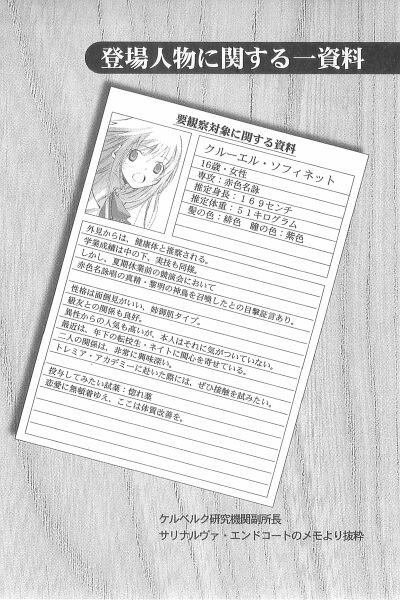 登場人物に関する一資料
要観察対象に関する資料
クルーエル・ソフィネット
16歳・女性
専攻：赤色名詠
推定身長：169センチ
推定体重：51キログラム
髪の色：緋色　瞳の色：紫色
外見からは、健康体と推察される。
学業成績は中の下、実技も同様。
しかし、夏期休業前の競演会において
赤色名詠唱の真精・黎明の神鳥を召喚したとの目撃証言あり。
性格は面倒見がいい、姉御肌タイプ。
級友との関係も良好。
異性からの人気も高いが、本人はそれに気がついていない。
最近は、年下の転校生・ネイトに関心を寄せている。
二人の関係は、非常に興味深い。
トレミア・アカデミーに赴いた際には、ぜひ接触を試みたい。
投与してみたい試薬：惚れ薬
恋愛に無頓着ゆえ、ここは体質改善を。
ケルベルク研究機関副所長
サリナルヴァ・エンドコートのメモより抜粋